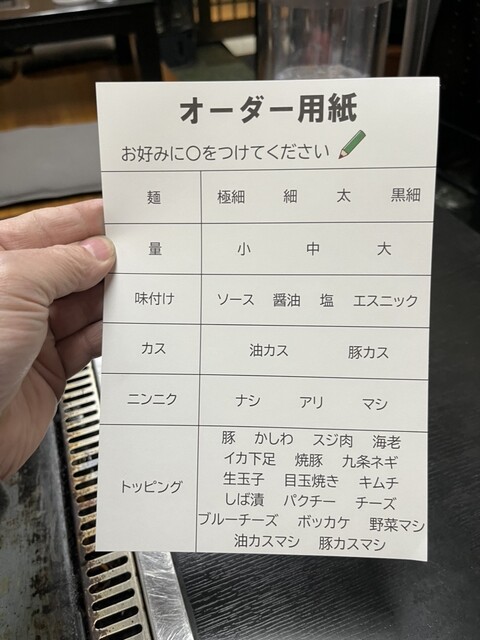 オーダー用紙
お好みに〇をつけてください
麺 極細 細 太 黒細
量 小 中 大
味付け ソース 醤油 塩 エスニック
カス 油カス 豚カス
ニンニク ナシ アリ マシ
トッピング
豚 かしわ スジ肉 海老
イカ下足 焼豚 九条ネギ
生玉子 目玉焼き キムチ
しば漬 パクチー チーズ
ブルーチーズ ボッカケ 野菜マシ
油カスマシ 豚カスマシ